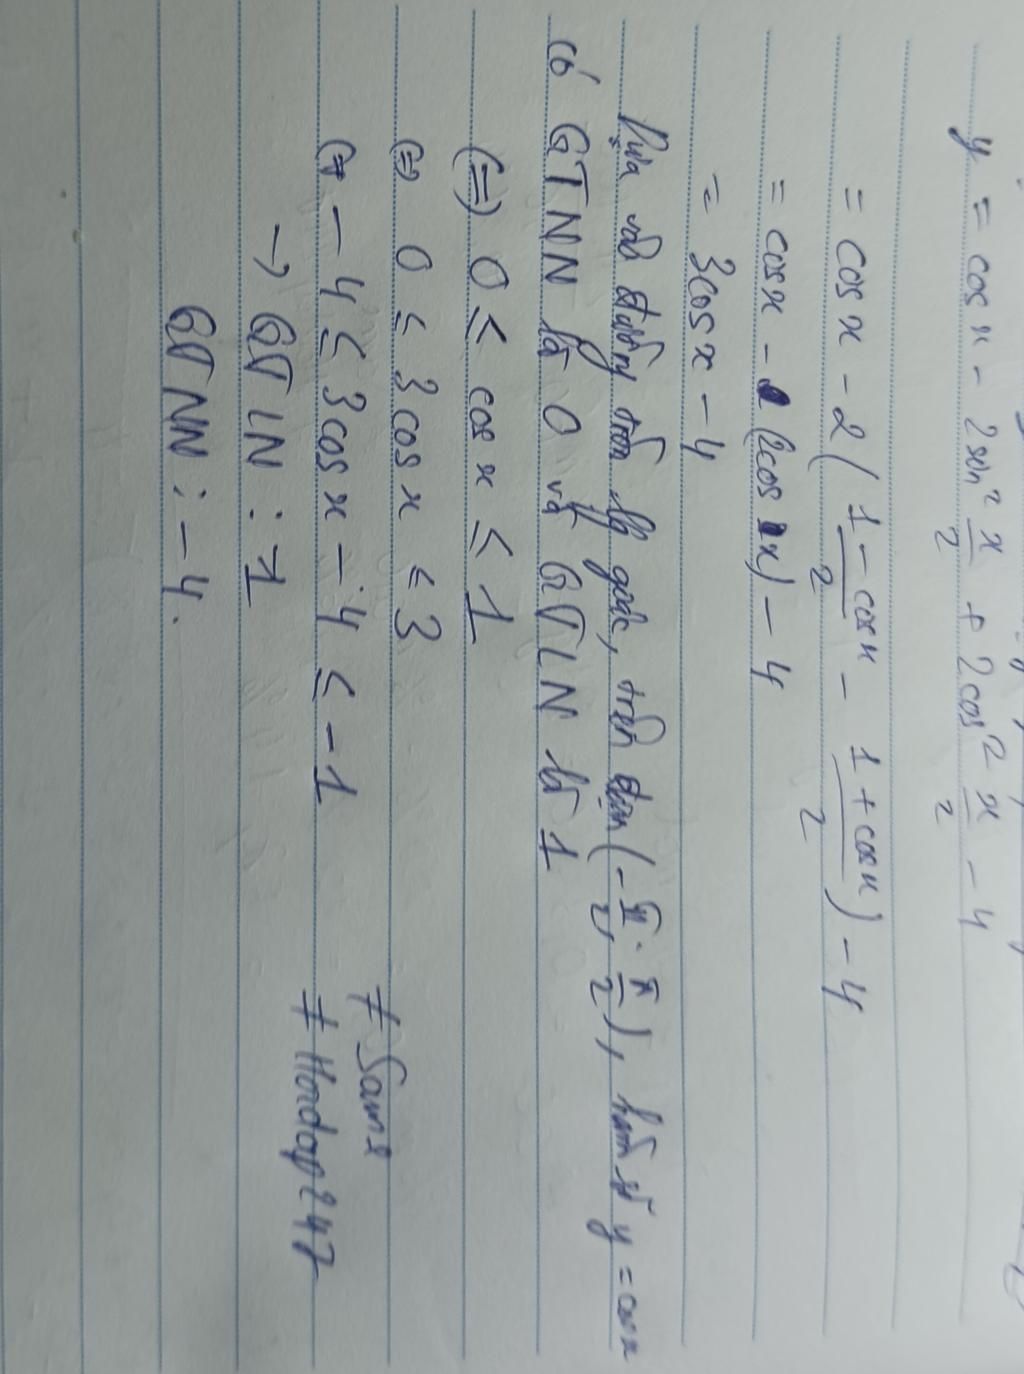 y = cos x - 2 sin² x/2 + 2cos² x/2 - 4
= cos x - 2 ( (1 - cos x)/2 - (1 + cos x)/2 ) - 4
= cos x - (2cos x) - 4
= 3cos x - 4
Dựa vào đường tròn lg giác, trên đoạn (-π/2; π/2), hàm số y = cos x
có GTNN là 0 và GTLN là 1
(=) 0 ≤ cos x ≤ 1
(=) 0 ≤ 3cos x ≤ 3
(=) - 4 ≤ 3cos x - 4 ≤ -1
→ GTLN : 1
GTNN : -4.
≠ Hoidap247